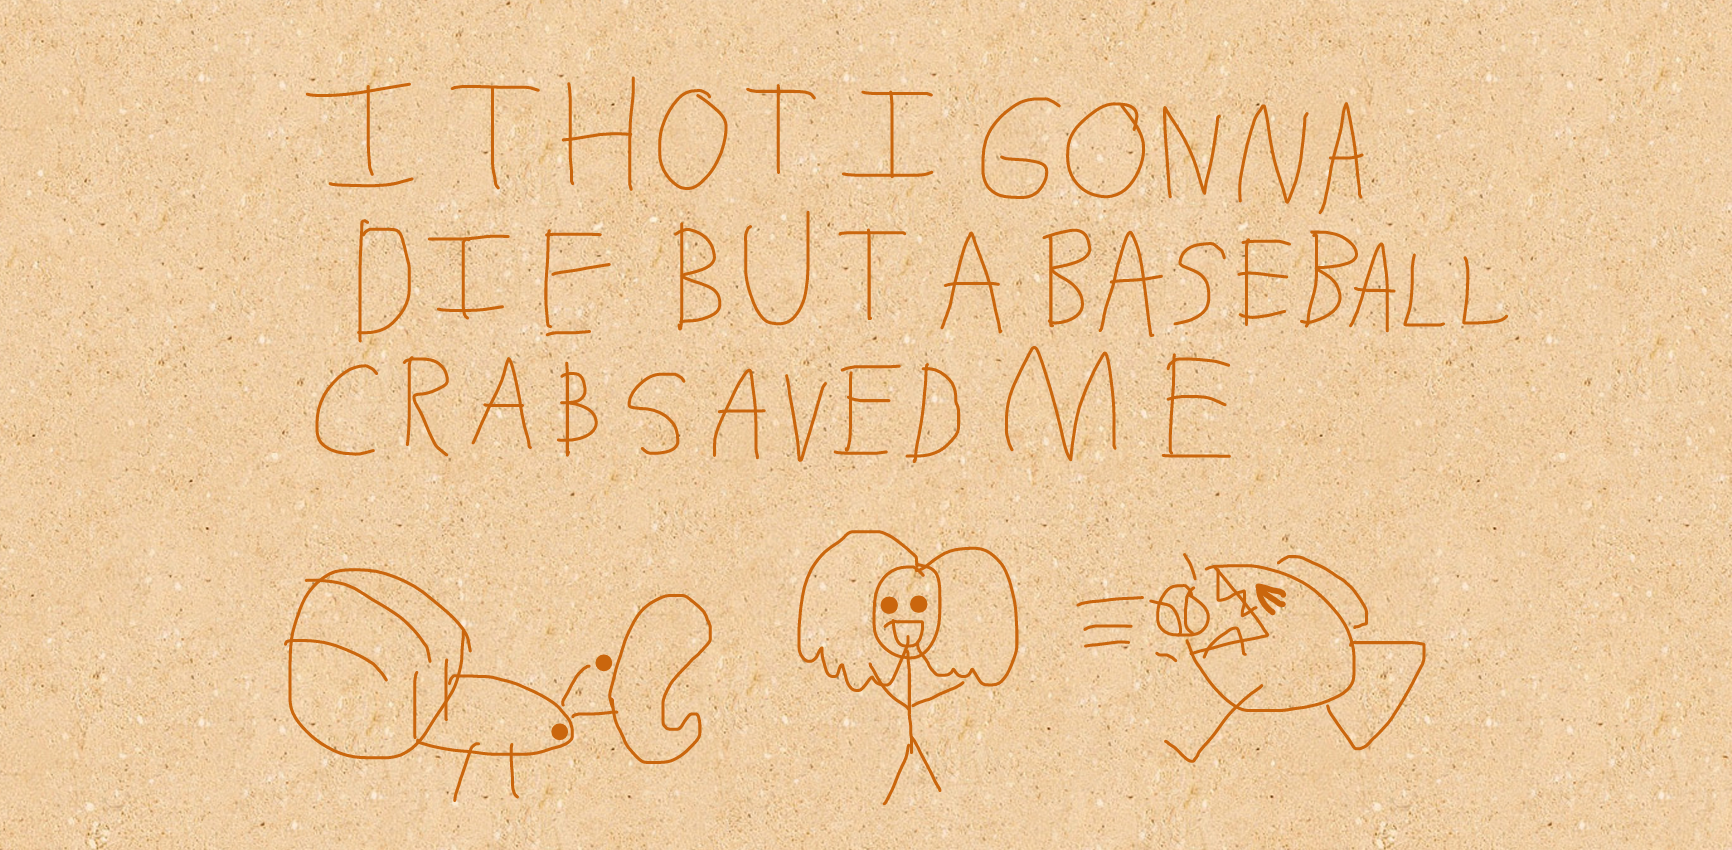 I THOT I GONNA
DIE BUT A BASEBALL
CRAB SAVED ME